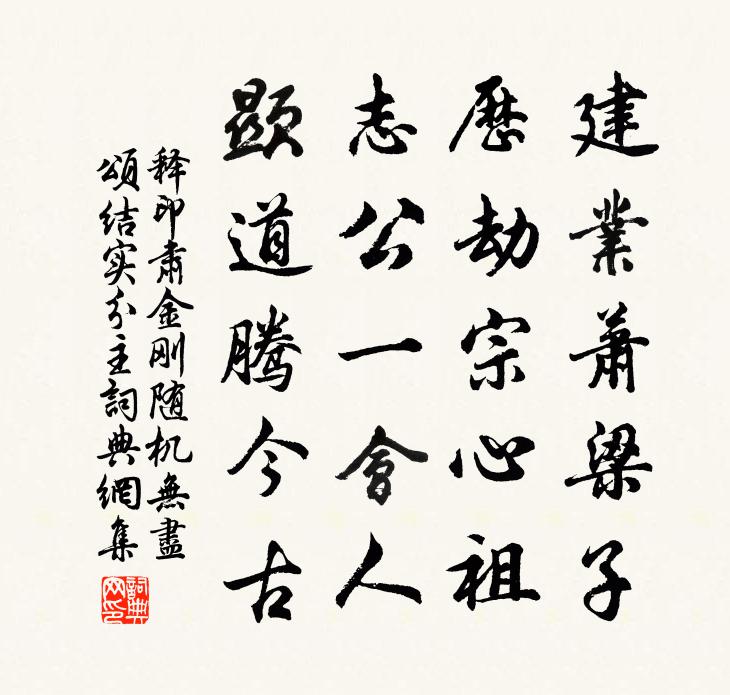 建業蕭梁子
歷劫宗心祖
志公一會人
顯道騰今古
释印肃金刚随机無盡
頌结实分主詞典網集
詞典网印